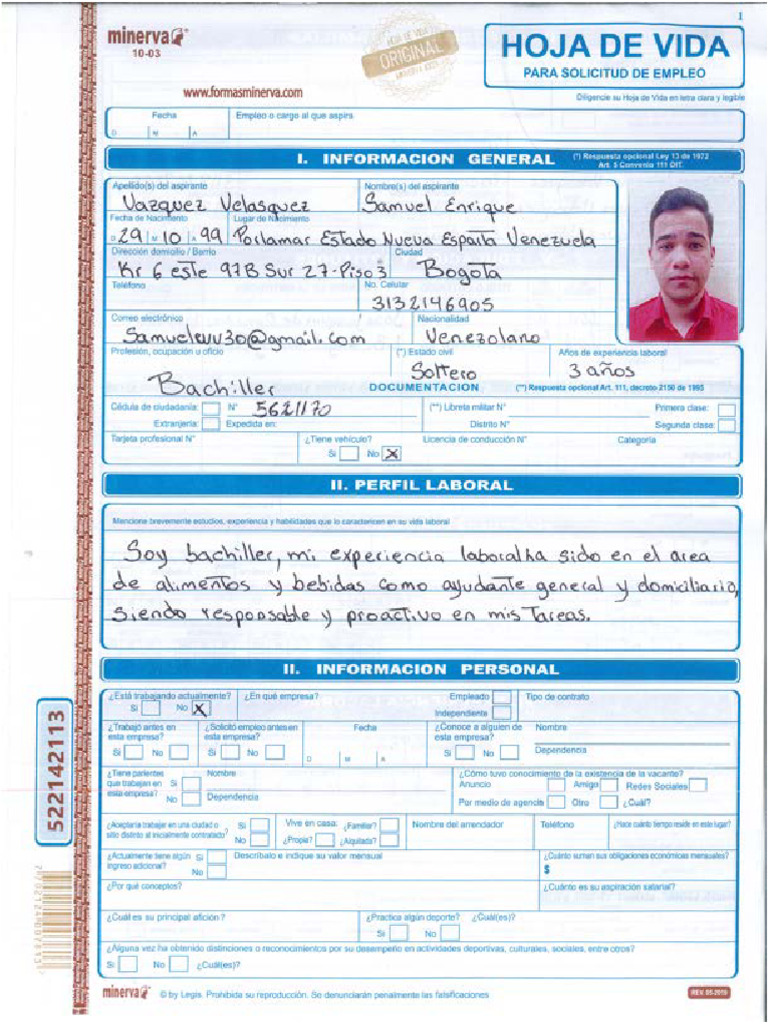 1
minerva
10-03
HOJA DE VIDA
ORIGINAL
HOJA DE VIDA
PARA SOLICITUD DE EMPLEO
www.formasminerva.com
Diligencie su Hoja de Vida en letra clara y legible
Fecha Empleo o cargo al que aspira
D M A
I. INFORMACION GENERAL (*) Respuesta opcional Ley 13 de 1972
Art. 5 Convenio 111 OIT.
Apellido(s) del aspirante Nombre(s) del aspirante
Vazquez Velasquez Samuel Enrique
Fecha de Nacimiento Lugar de Nacimiento
D 29 M 10 A 99 Porlamar Estado Nueva Esparta Venezuela
Dirección domicilio / Barrio Ciudad
Kr 6 este 97B Sur 27-Piso3 Bogota
Teléfono No. Celular
3132146905
Correo electrónico Nacionalidad
Samuelevv30@gmail.com Venezolano
Profesión, ocupación u oficio (*) Estado civil Años de experiencia laboral
Bachiller Soltero 3 años
DOCUMENTACION (**) Respuesta opcional Art. 111, decreto 2150 de 1995
Cédula de ciudadanía: N° 5621170 (**) Libreta militar N° Primera clase:
Extranjería: Expedida en: Distrito N° Segunda clase:
Tarjeta profesional N° ¿Tiene vehículo? Licencia de conducción N° Categoría
Si No X
II. PERFIL LABORAL
Mencione brevemente estudios, experiencia y habilidades que lo caractericen en su vida laboral
Soy bachiller, mi experiencia laboral ha sido en el area
de alimentos y bebidas como ayudante general y domiciliario,
siendo responsable y proactivo en mis Tareas.
II. INFORMACION PERSONAL
¿Está trabajando actualmente? ¿En qué empresa? Empleado Tipo de contrato
Si No X Independiente
¿Trabajó antes en esta empresa? ¿Solicitó empleo antes en esta empresa? Fecha ¿Conoce a alguien de esta empresa? Nombre
Si No Si No D M A Si No Dependencia
¿Tiene parientes que trabajan en esta empresa? Si No Nombre ¿Cómo tuvo conocimiento de la existencia de la vacante?
Anuncio Amigo Redes Sociales
Dependencia Por medio de agencia Otro ¿Cuál?
¿Aceptaría trabajar en una ciudad o sitio distinto al inicialmente contratado? Si No Vive en casa: ¿Familiar? ¿Propia? ¿Alquilada? Nombre del arrendador Teléfono ¿Hace cuánto tiempo reside en este lugar?
¿Actualmente tiene algún ingreso adicional? Si No Descríbalo e indique su valor mensual ¿Cuánto suman sus obligaciones económicas mensuales?
$
¿Por qué conceptos? ¿Cuánto es su aspiración salarial?
¿Cuál es su principal afición? ¿Practica algún deporte? ¿Cuál(es)?
Si No
¿Alguna vez ha obtenido distinciones o reconocimientos por su desempeño en actividades deportivas, culturales, sociales, entre otros?
Si No ¿Cuál(es)?
minerva © by Legis. Prohibida su reproducción. Se denunciarán penalmente las falsificaciones REV. 05-2019
522142113